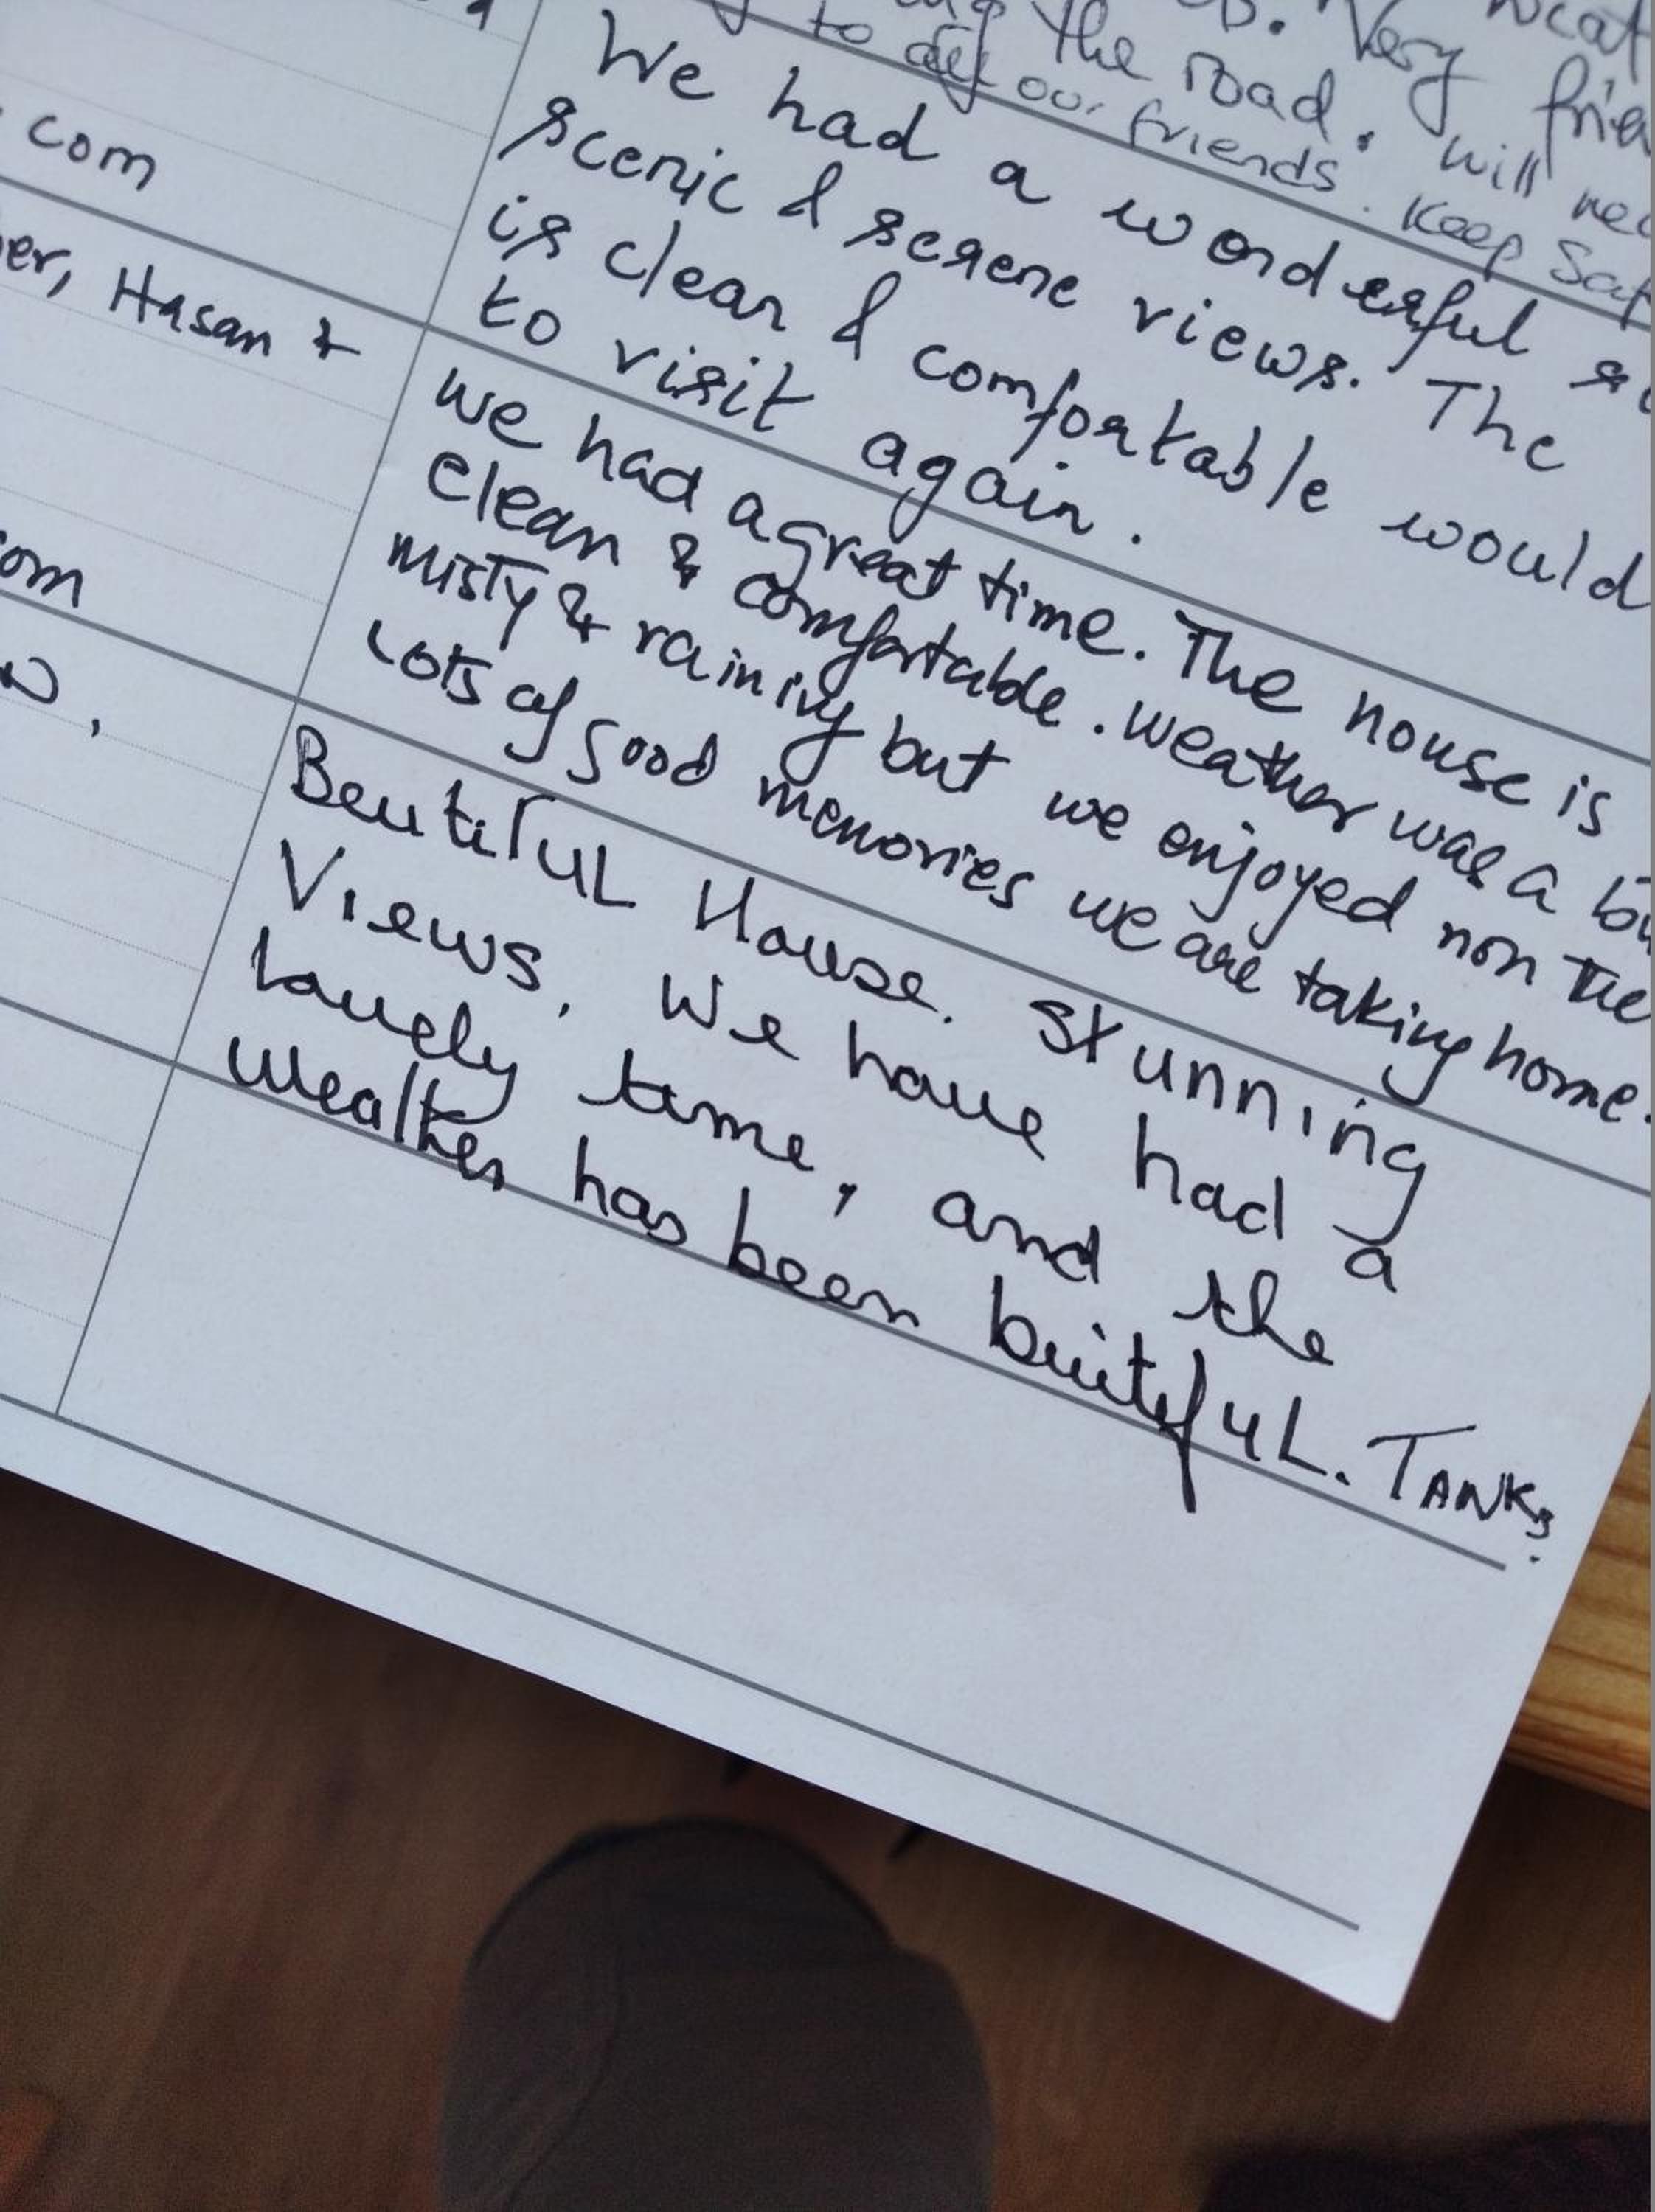 the road. Very
to all our friends. Will
Keep
We had a wonderful
scenic & serene views. The
is clear & comfortable would
to visit again.
com
Hasan &
we had a great time. The house is
clean & comfortable. weather was a
misty & rainy but we enjoyed non the
Lots of good memories we are taking home.
Beutiful House. Stunning
Views. We have had a
Lovely time, and the
weather has been buitiful. TANKS.